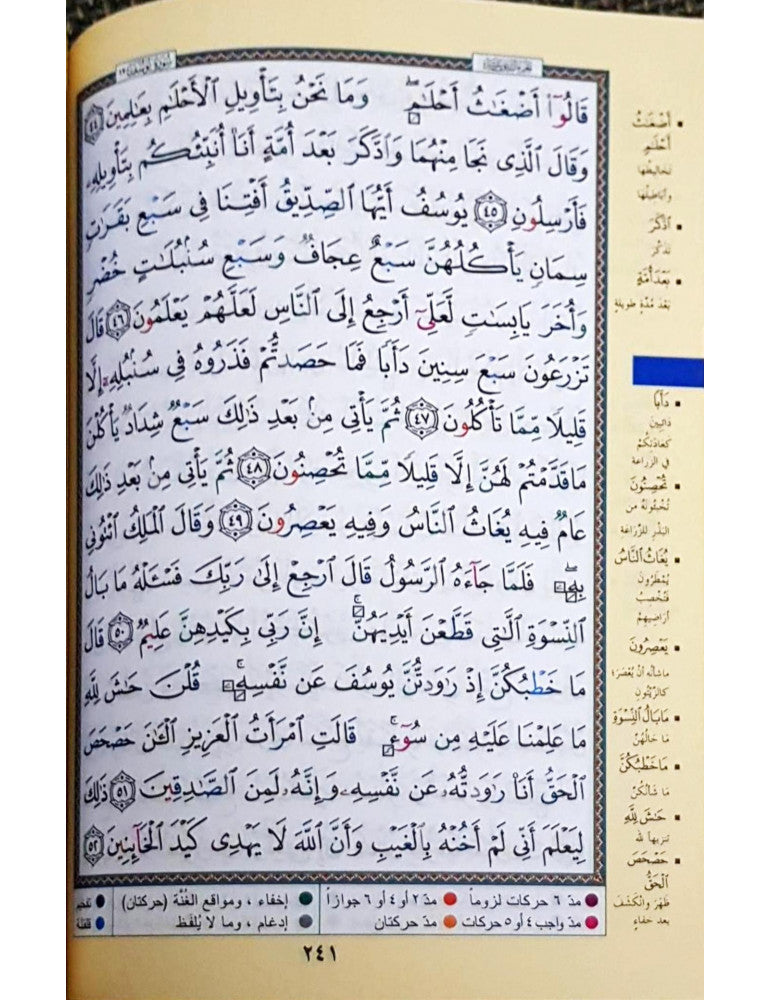 سورة يوسف ١٢
قَالُوٓا۟ أَضْغَـٰثُ أَحْلَـٰمٍ ۖ وَمَا نَحْنُ بِتَأْوِيلِ ٱلْأَحْلَـٰمِ بِعَـٰلِمِينَ ٤٤
وَقَالَ ٱلَّذِى نَجَا مِنْهُمَا وَٱدَّكَرَ بَعْدَ أُمَّةٍ أَنَا۠ أُنَبِّئُكُم بِتَأْوِيلِهِۦ
فَأَرْسِلُونِ ٤٥ يُوسُفُ أَيُّهَا ٱلصِّدِّيقُ أَفْتِنَا فِى سَبْعِ بَقَرَٰتٍ
سِمَانٍ يَأْكُلُهُنَّ سَبْعٌ عِجَافٌ وَسَبْعِ سُنۢبُلَـٰتٍ خُضْرٍ
وَأُخَرَ يَابِسَـٰتٍ لَّعَلِّىٓ أَرْجِعُ إِلَى ٱلنَّاسِ لَعَلَّهُمْ يَعْلَمُونَ ٤٦ قَالَ
تَزْرَعُونَ سَبْعَ سِنِينَ دَأَبًا فَمَا حَصَدتُّمْ فَذَرُوهُ فِى سُنۢبُلِهِۦٓ إِلَّا
قَلِيلًا مِّمَّا تَأْكُلُونَ ٤٧ ثُمَّ يَأْتِى مِنۢ بَعْدِ ذَٰلِكَ سَبْعٌ شِدَادٌ يَأْكُلْنَ
مَا قَدَّمْتُمْ لَهُنَّ إِلَّا قَلِيلًا مِّمَّا تُحْصِنُونَ ٤٨ ثُمَّ يَأْتِى مِنۢ بَعْدِ ذَٰلِكَ
عَامٌ فِيهِ يُغَاثُ ٱلنَّاسُ وَفِيهِ يَعْصِرُونَ ٤٩ وَقَالَ ٱلْمَلِكُ ٱئْتُونِى
بِهِۦ ۖ فَلَمَّا جَآءَهُ ٱلرَّسُولُ قَالَ ٱرْجِعْ إِلَىٰ رَبِّكَ فَسْـَٔلْهُ مَا بَالُ
ٱلنِّسْوَةِ ٱلَّـٰتِى قَطَّعْنَ أَيْدِيَهُنَّ ۚ إِنَّ رَبِّى بِكَيْدِهِنَّ عَلِيمٌ ٥٠ قَالَ
مَا خَطْبُكُنَّ إِذْ رَٰوَدتُّنَّ يُوسُفَ عَن نَّفْسِهِۦ ۚ قُلْنَ حَـٰشَ لِلَّهِ
مَا عَلِمْنَا عَلَيْهِ مِن سُوٓءٍ ۚ قَالَتِ ٱمْرَأَتُ ٱلْعَزِيزِ ٱلْـَٔـٰنَ حَصْحَصَ
ٱلْحَقُّ أَنَا۠ رَٰوَدتُّهُۥ عَن نَّفْسِهِۦ وَإِنَّهُۥ لَمِنَ ٱلصَّـٰدِقِينَ ٥١ ذَٰلِكَ
لِيَعْلَمَ أَنِّى لَمْ أَخُنْهُ بِٱلْغَيْبِ وَأَنَّ ٱللَّهَ لَا يَهْدِى كَيْدَ ٱلْخَآئِنِينَ ٥٢
أَضْغَـٰثُ
أَحْلَـٰمٍ
تخاليطها
وأباطيلها
ٱدَّكَرَ
تذكّر
بَعْدَ أُمَّةٍ
بَعْدَ مُدّةٍ طويلةٍ
دَأَبًا
دائبينَ
كعادتكُمْ
في الزراعة
تُحْصِنُونَ
تُخبئونَهُ من
البَذْرِ للزّراعَةِ
يُغَاثُ ٱلنَّاسُ
يُمْطَرُونَ
فتُخْصِبُ
أراضيهمْ
يَعْصِرُونَ
ما شأنُه أنْ يُعْصَرَ؛
كالزَّيْتُونِ
مَا بَالُ ٱلنِّسْوَةِ
ما حَالُهُنّ
مَا خَطْبُكُنَّ
ما شَأنُكُنّ
حَـٰشَ لِلَّهِ
تنزيهاً لله
حَصْحَصَ
ٱلْحَقُّ
ظَهَرَ وانْكَشَفَ
بعد خفاءٍ
مدّ ٦ حركات لزوماً مدّ ٢ أو ٤ أو ٦ جوازاً إخفاء ، ومواقع الغُنَّة (حركتان)
مدّ واجب ٤ أو ٥ حركات مدّ حركتان إدغام ، وما لا يُلفَظ
٢٤١